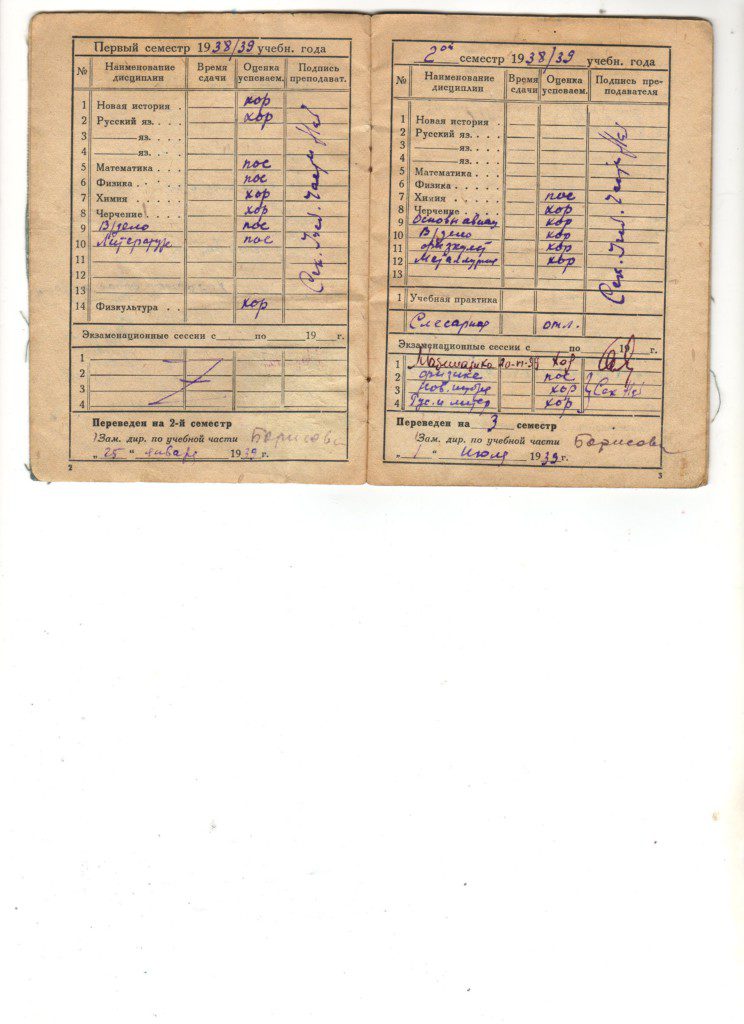 Первый семестр 1938/39 учебн. года
№ Наименование дисциплин Время сдачи Оценка успеваем. Подпись преподават.
1 Новая история . хор
2 Русский яз. . . хор
3 яз. . .
4 яз. . .
5 Математика . . . пос
6 Физика . . . пос
7 Химия . . . хор
8 Черчение . . хор
9 В/дело пос
10 Литература пос
11
12
13
14 Физкультура . . хор
Экзаменационные сессии с по 19 г.
1
2
3
4
Переведен на 2-й семестр
Зам. дир. по учебной части Борисова
„25“ января 1939 г.
2
2ой семестр 1938/39 учебн. года
№ Наименование дисциплин Время сдачи Оценка успеваем. Подпись преподавателя
1 Новая история .
2 Русский яз. . . .
3 яз. . . .
4 яз. . . .
5 Математика . . .
6 Физика . . . .
7 Химия . . . . пос
8 Черчение . . . хор
9 Основы авиац хор
10 В/дело хор
11 физкульт хор
12 Металлургия хор
13
1 Учебная практика
Слесарная отл.
Экзаменационные сессии с по 19 г.
1 Математика 20-VI-39 хор
2 физика пос
3 Нов. истор хор Сек
4 Рус. и литер хор
Переведен на 3 семестр
Зам. дир. по учебной части Борисова
„1“ июля 1939 г.
3